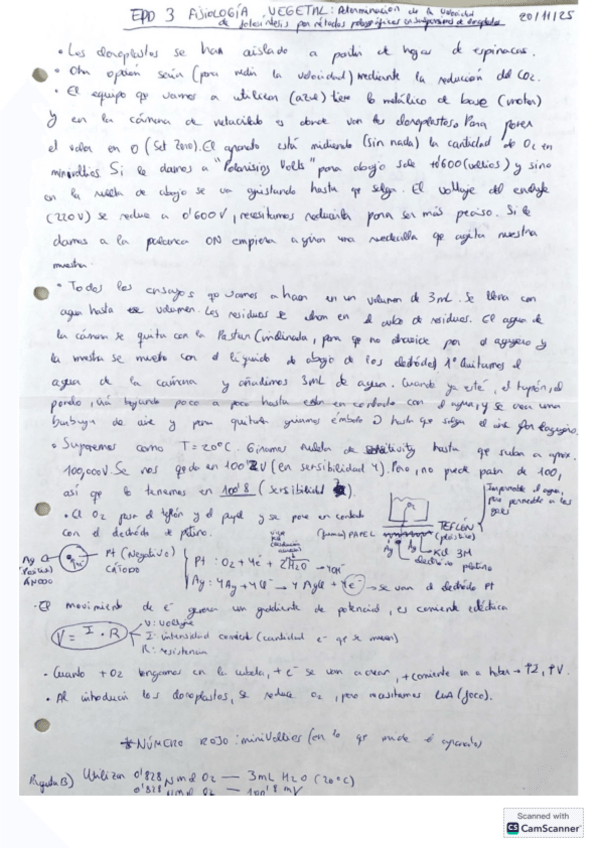 EPD 3 FISIOLOGÍA VEGETAL: Determinación de la velocidad 20/11/25
de fotosíntesis por métodos polarográficos en suspensiones de cloroplastos
• Los cloroplastos se han aislado a partir de hojas de espinacas.
• Otra opción sería (para medir la velocidad) mediante la reducción del CO2.
• El equipo q vamos a utilizar (azul) tiene lo metálico de base (motor)
y en la cámara de metacrilato es donde van los cloroplastos. Para poner
el valor en 0 (Set Zero). El aparato está midiendo (sin nada) la cantidad de O2 en
minivoltios Si le damos a "Polarising Volts" para abajo sale +0'600 (voltios) y sino
en la ruleta de abajo se va ajustando hasta que salga. El voltaje del enchufe
(220V) se reduce a 0'600 V, necesitamos reducirla para ser más preciso. Si le
damos a la palanca ON empieza a girar una ruedecilla que agita nuestra
muestra
• Todos los ensayos q vamos a hacer en un volumen de 3mL. Se llena con
agua hasta ese volumen. Los residuos se echan en el cubo de residuos. El agua de
la cámara se quita con la Pasteur (inclinada, para que no atraviese por el agujero y
la muestra se mezcle con el líquido de abajo de los electrodos) 1º Quitamos el
agua de la cámara y añadimos 3mL de agua. Cuando ya esté, el tapón, el
gordo, irá bajando poco a poco hasta estar en contacto con el agua, y se crea una
burbuja de aire y para quitarla giramos émbolo hasta que salga el aire por
• Suponemos como T=20ºC. Giramos ruleta de sensitivity hasta que suba a aprox.
100,000V. Se nos quedó en 100'2V (en sensibilidad 4). Pero, no puede pasar de 100,
así que lo tenemos en 100'8 (sensibilidad
• El O2 pasa el teflón y el papel y se pone en contacto
con el electrodo de platino.
Impermeable al agua,
pero permeable a los
gases
O2
TEFLÓN
(plástico)
(fumar) PAPEL
Ag Ag
KCl 3M
electrodo platino
Ag
(Positivo)
ÁNODO
Pt (Negativo)
CÁTODO
Pt: O2 + 4e- + 2H2O → 4OH-
Ag: 4Ag + 4Cl- → 4AgCl + 4e- → se van al electrodo Pt
• El movimiento de e- genera un gradiente de potencial, es corriente eléctrica
V = I · R
V: voltaje
I: intensidad corriente (cantidad e- que se mueven)
R: resistencia
• Cuanto + O2 tengamos en la cubeta, + e- se van a crear, + corriente va a haber → ↑I, ↑V.
• Al introducir los cloroplastos, se reduce O2, pero necesitamos LUZ (foco).
* NÚMERO ROJO: minivoltios (en lo que mide el aparato)
Pregunta B) Utilizar 0'828 Nmol O2 — 3mL H2O (20ºC)
0'828 Nmol O2 — 100'8 mV
Scanned with
CS CamScanner